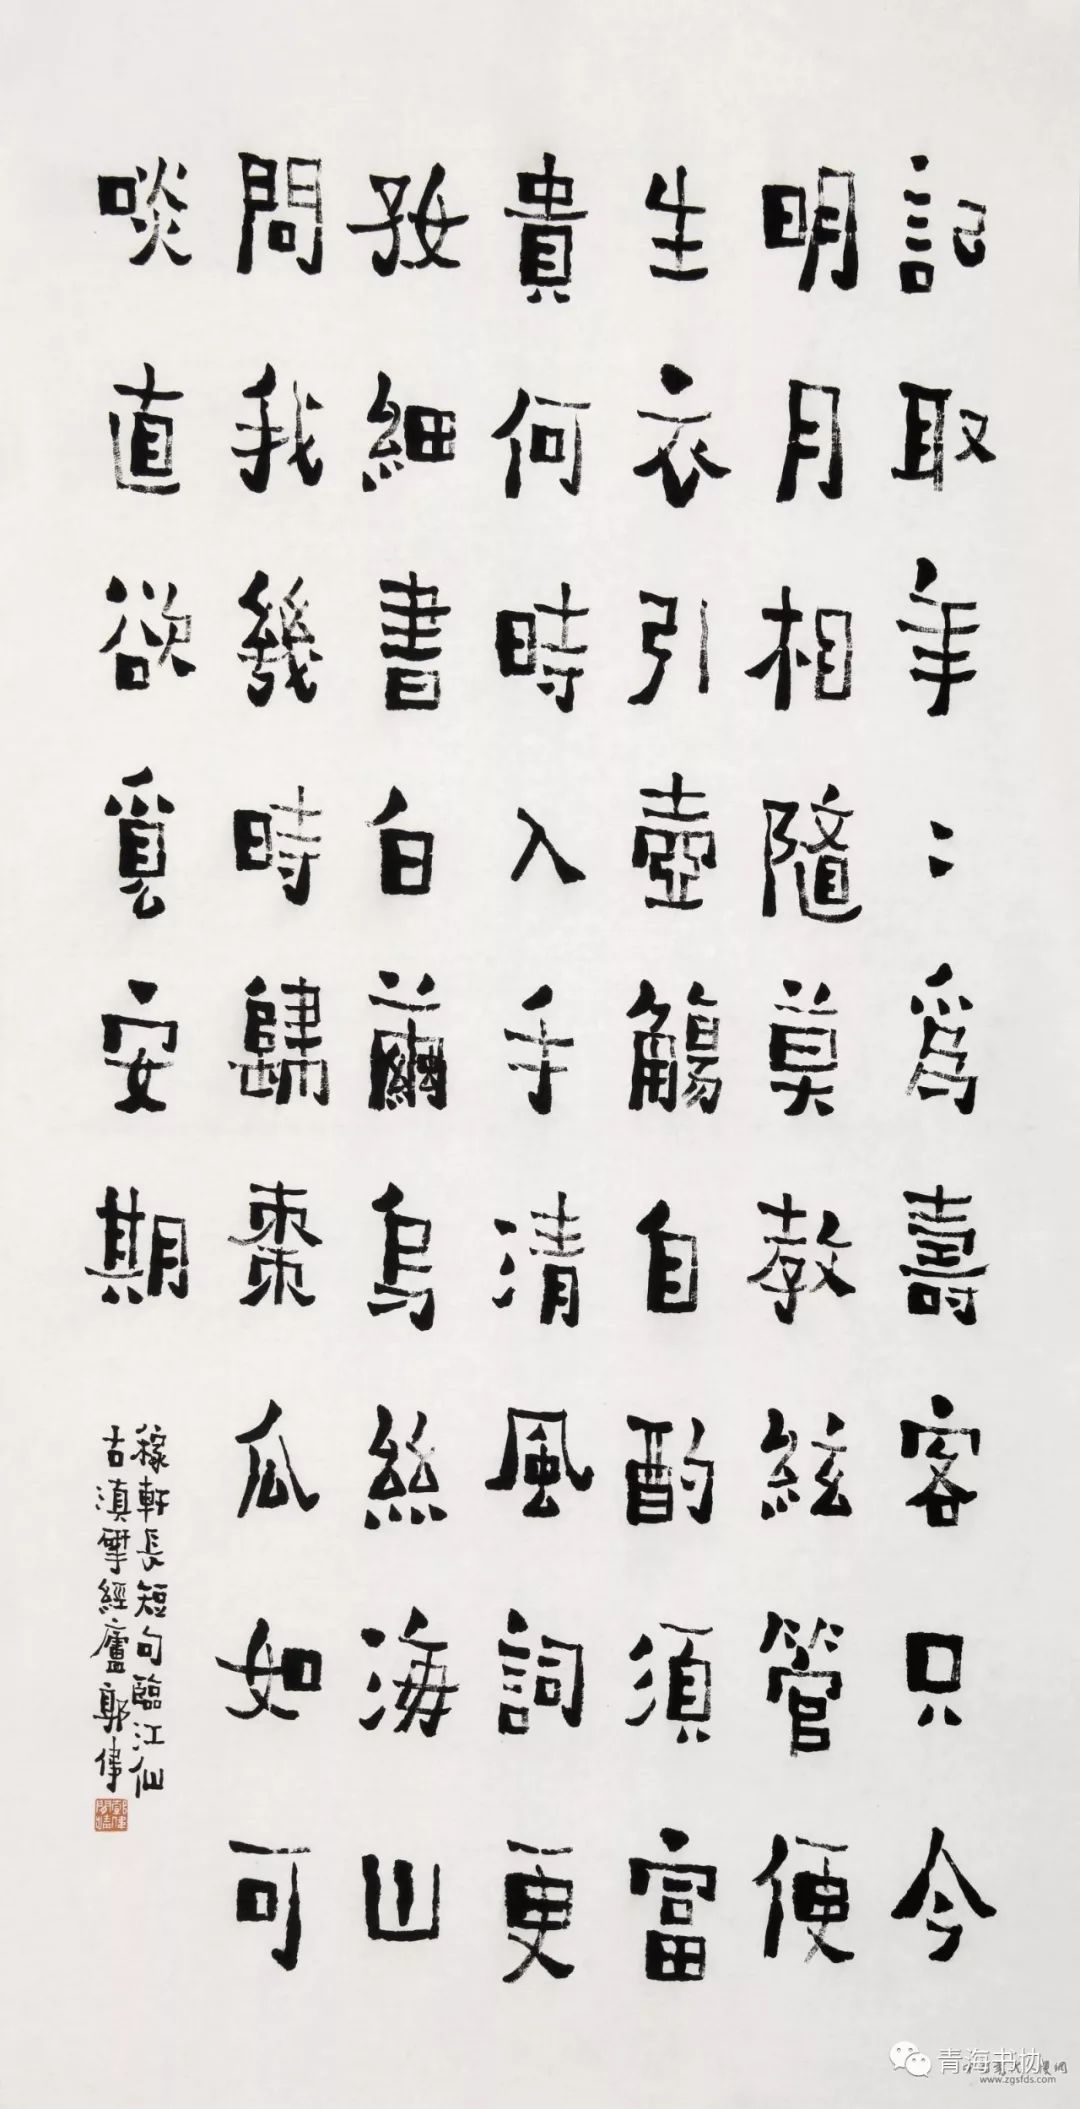 記取年〻爲壽客只今
明月相隨莫教絃管便
生衣引壺觴自酌須富
貴何時入手清風詞更
好細書白繭烏絲海山
問我幾時歸棗瓜如可
啖直欲覓安期
稼軒長短句臨江仙
古滇揅經廬郭偉
青海书协
www.zgsfds.com